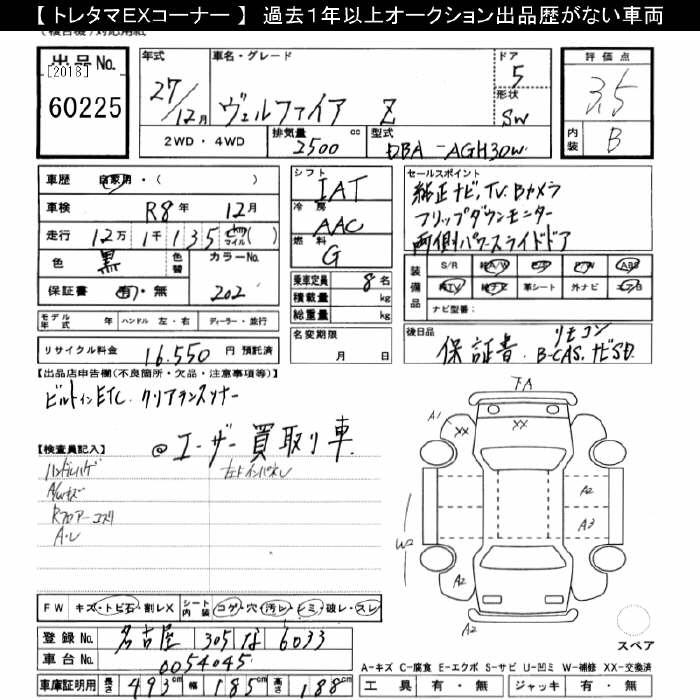 【 トレタマEXコーナー 】 過去１年以上オークション出品歴がない車両
出品No.
[2018]
60225
年式
27/12月
車名・グレード
ヴェルファイア Z
ドア
5
形状
SW
評価点
3.5
内装
B
2WD・4WD
排気量
2500 cc
型式
DBA-AGH30W
車歴 自家用・( )
車検 R8年 12月
走行 12万 1千 135 km マイル ( )
色 黒
色替
カラーNo.
202
保証書 有・無
モデル年式 年 ハンドル 左・右 ディーラー・並行
リサイクル料金 16,550 円 預託済
シフト
IAT
冷房
AAC
燃料
G
乗車定員 8 名
積載量 kg
総重量 kg
名変期限
月 日
セールスポイント
純正ナビ,TV,Bカメラ
フリップダウンモニター
両側パワースライドドア
装備品
S/R
革シート 外ナビ
ABS
ナビ型番:
後日品
リモコン
保証書 B-CAS.ナビSD
【出品店申告欄(不良箇所・欠品・注意事項等)】
ビルトインETC. クリアランスソナー
@ユーザー買取り車
【検査員記入】
ハンドルハゲ
A/Wキズ
Rフロアーコスリ
A・U
FW キズ・トビ石・割レX シート内装 コゲ・穴・汚レ・シミ・破レ・スレ
登録No. 名古屋 305 な 6033
車台No. 0054045
車庫証明用 長さ 493cm 幅 185cm 高さ 188cm
FA
A1
XX
XX
A2
A3
W2
A2
A2
スペア
A-キズ C-腐食 E-エクボ S-サビ U-凹ミ W-補修 XX-交換済
工具 有・無 ジャッキ 有・無